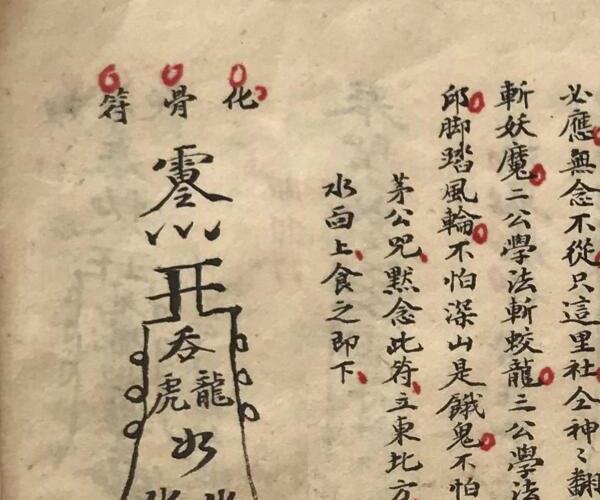 必應無念不從只這里社仝神〻翻
斬妖魔二公學法斬蛟龍三公學法
邱脚踏風輪不怕深山是餓鬼不怕
茅公咒默念此符立東北方
水面上食之即下
化骨符
零
开
吞
龍虎
水